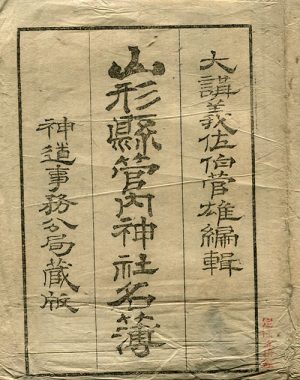 大講義佐伯菅雄編輯
山形縣管内神社名簿
神道事務分局藏版